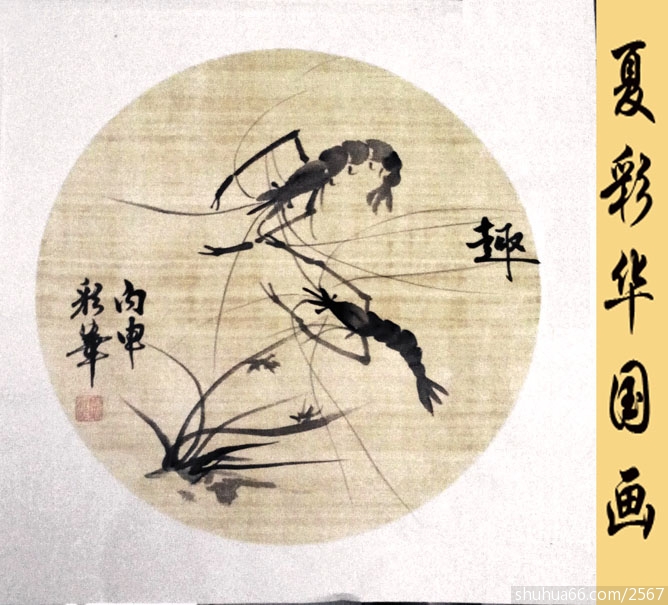 趣
丙申
彩華
夏彩华国画
shuhua66.com/2567